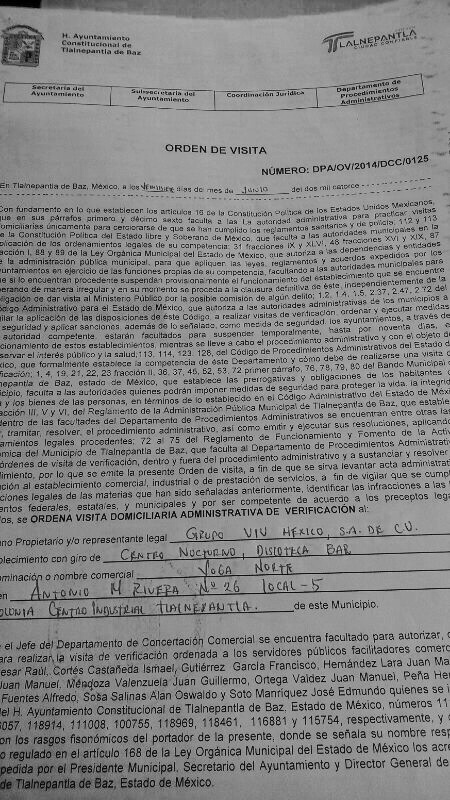 H. Ayuntamiento
Constitucional de
Tlalnepantla de Baz
TLALNEPANTLA
CIUDAD CONFIABLE
Secretaría del
Ayuntamiento
Subsecretaría del
Ayuntamiento
Coordinación Jurídica
Departamento de
Procedimientos
Administrativos
ORDEN DE VISITA
NÚMERO: DPA/OV/2014/DCC/0125
En Tlalnepantla de Baz, México, a los días del mes de JUNIO del dos mil catorce
Con fundamento en lo que establecen los artículos 16 de la Constitución Política de los Estados Unidos Mexicanos,
que en sus párrafos primero y décimo sexto faculta a las La autoridad administrativa para practicar visitas
domiciliarias únicamente para cerciorarse de que se han cumplido los reglamentos sanitarios y de policía; 112 y 113
e la Constitución Política del Estado libre y Soberano de México, que faculta a las autoridades municipales en la
plicación de los ordenamientos legales de su competencia; 31 fracciones IX y XLVI, 48 fracciones XVI y XIX, 87
cción I, 88 y 89 de la Ley Orgánica Municipal del Estado de México, que autoriza a las dependencias y entidades
e la administración pública municipal, para que apliquen las leyes, reglamentos y acuerdos expedidos por los
yuntamientos en ejercicio de las funciones propias de su competencia, facultando a las autoridades municipales para
ue si lo encuentran procedente suspendan provisionalmente el funcionamiento del establecimiento que se encuentre
perando de manera irregular y en su momento se proceda a la clausura definitiva de éste, independientemente de la
bligación de dar vista al Ministerio Público por la posible comisión de algún delito; 1.2, 1.4, 1.5, 2.37, 2.47, 2.72 del
ódigo Administrativo para el Estado de México, que autoriza a las autoridades administrativas de los municipios a
gilar la aplicación de las disposiciones de éste Código, a realizar visitas de verificación, ordenar y ejecutar medidas
seguridad y aplicar sanciones, además de lo señalado, como medida de seguridad, los ayuntamientos, a través de
autoridad competente, estarán facultados para suspender temporalmente, hasta por noventa días, el
cionamiento de estos establecimientos, mientras se lleve a cabo el procedimiento administrativo y con el objeto de
servar el interés público y la salud; 113, 114, 123, 128, del Código de Procedimientos Administrativos del Estado de
xico, que formalmente establece la competencia de éste Departamento y cómo debe de realizarse una visita de
ificación; 1, 4, 19, 21, 22, 23 fracción II, 36, 37, 46, 52, 53, 72 primer párrafo, 76, 78, 79, 80 del Bando Municipal de
nepantla de Baz, estado de México, que establece las prerrogativas y obligaciones de los habitantes del
icipio, faculta a las autoridades quienes podrán imponer medidas de seguridad para proteger la vida, la integridad
a y los bienes de las personas, en términos de lo establecido en el Código Administrativo del Estado de México;
acción III, V y VI, del Reglamento de la Administración Pública Municipal de Tlalnepantla de Baz, que establece
dentro de las facultades del Departamento de Procedimientos Administrativos se encuentran entre otras las
, tramitar, resolver, el procedimiento administrativo, así como emitir y ejecutar sus resoluciones, aplicando
amientos legales procedentes; 72 al 75 del Reglamento de Funcionamiento y Fomento de la Activ
mica del Municipio de Tlalnepantla de Baz, que faculta al Departamento de Procedimientos Administrativos
órdenes de visita de verificación, dentro y fuera del procedimiento administrativo y a sustanciar y resolver
dimiento, por lo que se emite la presente Orden de visita, a fin de que se sirva levantar acta administrativa
ción al establecimiento comercial, industrial o de prestación de servicios, a fin de vigilar que se cumpla
ciones legales de las materias que han sido señaladas anteriormente, identificar las infracciones a las
entos federales, estatales, y municipales y por ser competente de acuerdo a los preceptos legal
dos, se ORDENA VISITA DOMICILIARIA ADMINISTRATIVA DE VERIFICACIÓN al:
no Propietario y/o representante legal GRUPO VIV MEXICO, S.A. DE C.V.
blecimiento con giro de CENTRO NOCTURNO, DISCOTECA BAR
nominación o nombre comercial VOGA NORTE
en ANTONIO M RIVERA Nº 26 LOCAL-5
OLONIA CENTRO INDUSTRIAL TLALNEPANTLA. de este Municipio.
e el Jefe del Departamento de Concertación Comercial se encuentra facultado para autorizar,
ara realizar la visita de verificación ordenada a los servidores públicos facilitadores comerc
esar Raúl, Cortés Castañeda Ismael, Gutiérrez García Francisco, Hernández Lara Juan Ma
Juan Manuel, Mendoza Valenzuela Juan Guillermo, Ortega Valdez Juan Manuel, Peña Her
Fuentes Alfredo, Sosa Salinas Alan Oswaldo y Soto Manriquez José Edmundo quienes se i
el H. Ayuntamiento Constitucional de Tlalnepantla de Baz, Estado de México, números 11
8057, 118914, 111008, 100755, 118969, 118461, 116881 y 115754, respectivamente, y
on los rasgos fisonómicos del portador de la presente, donde se señala su nombre resp
o regulado en el artículo 168 de la Ley Orgánica Municipal del Estado de México los acre
pedida por el Presidente Municipal, Secretario del Ayuntamiento y Director General de
de Tlalnepantla de Baz, Estado de México.